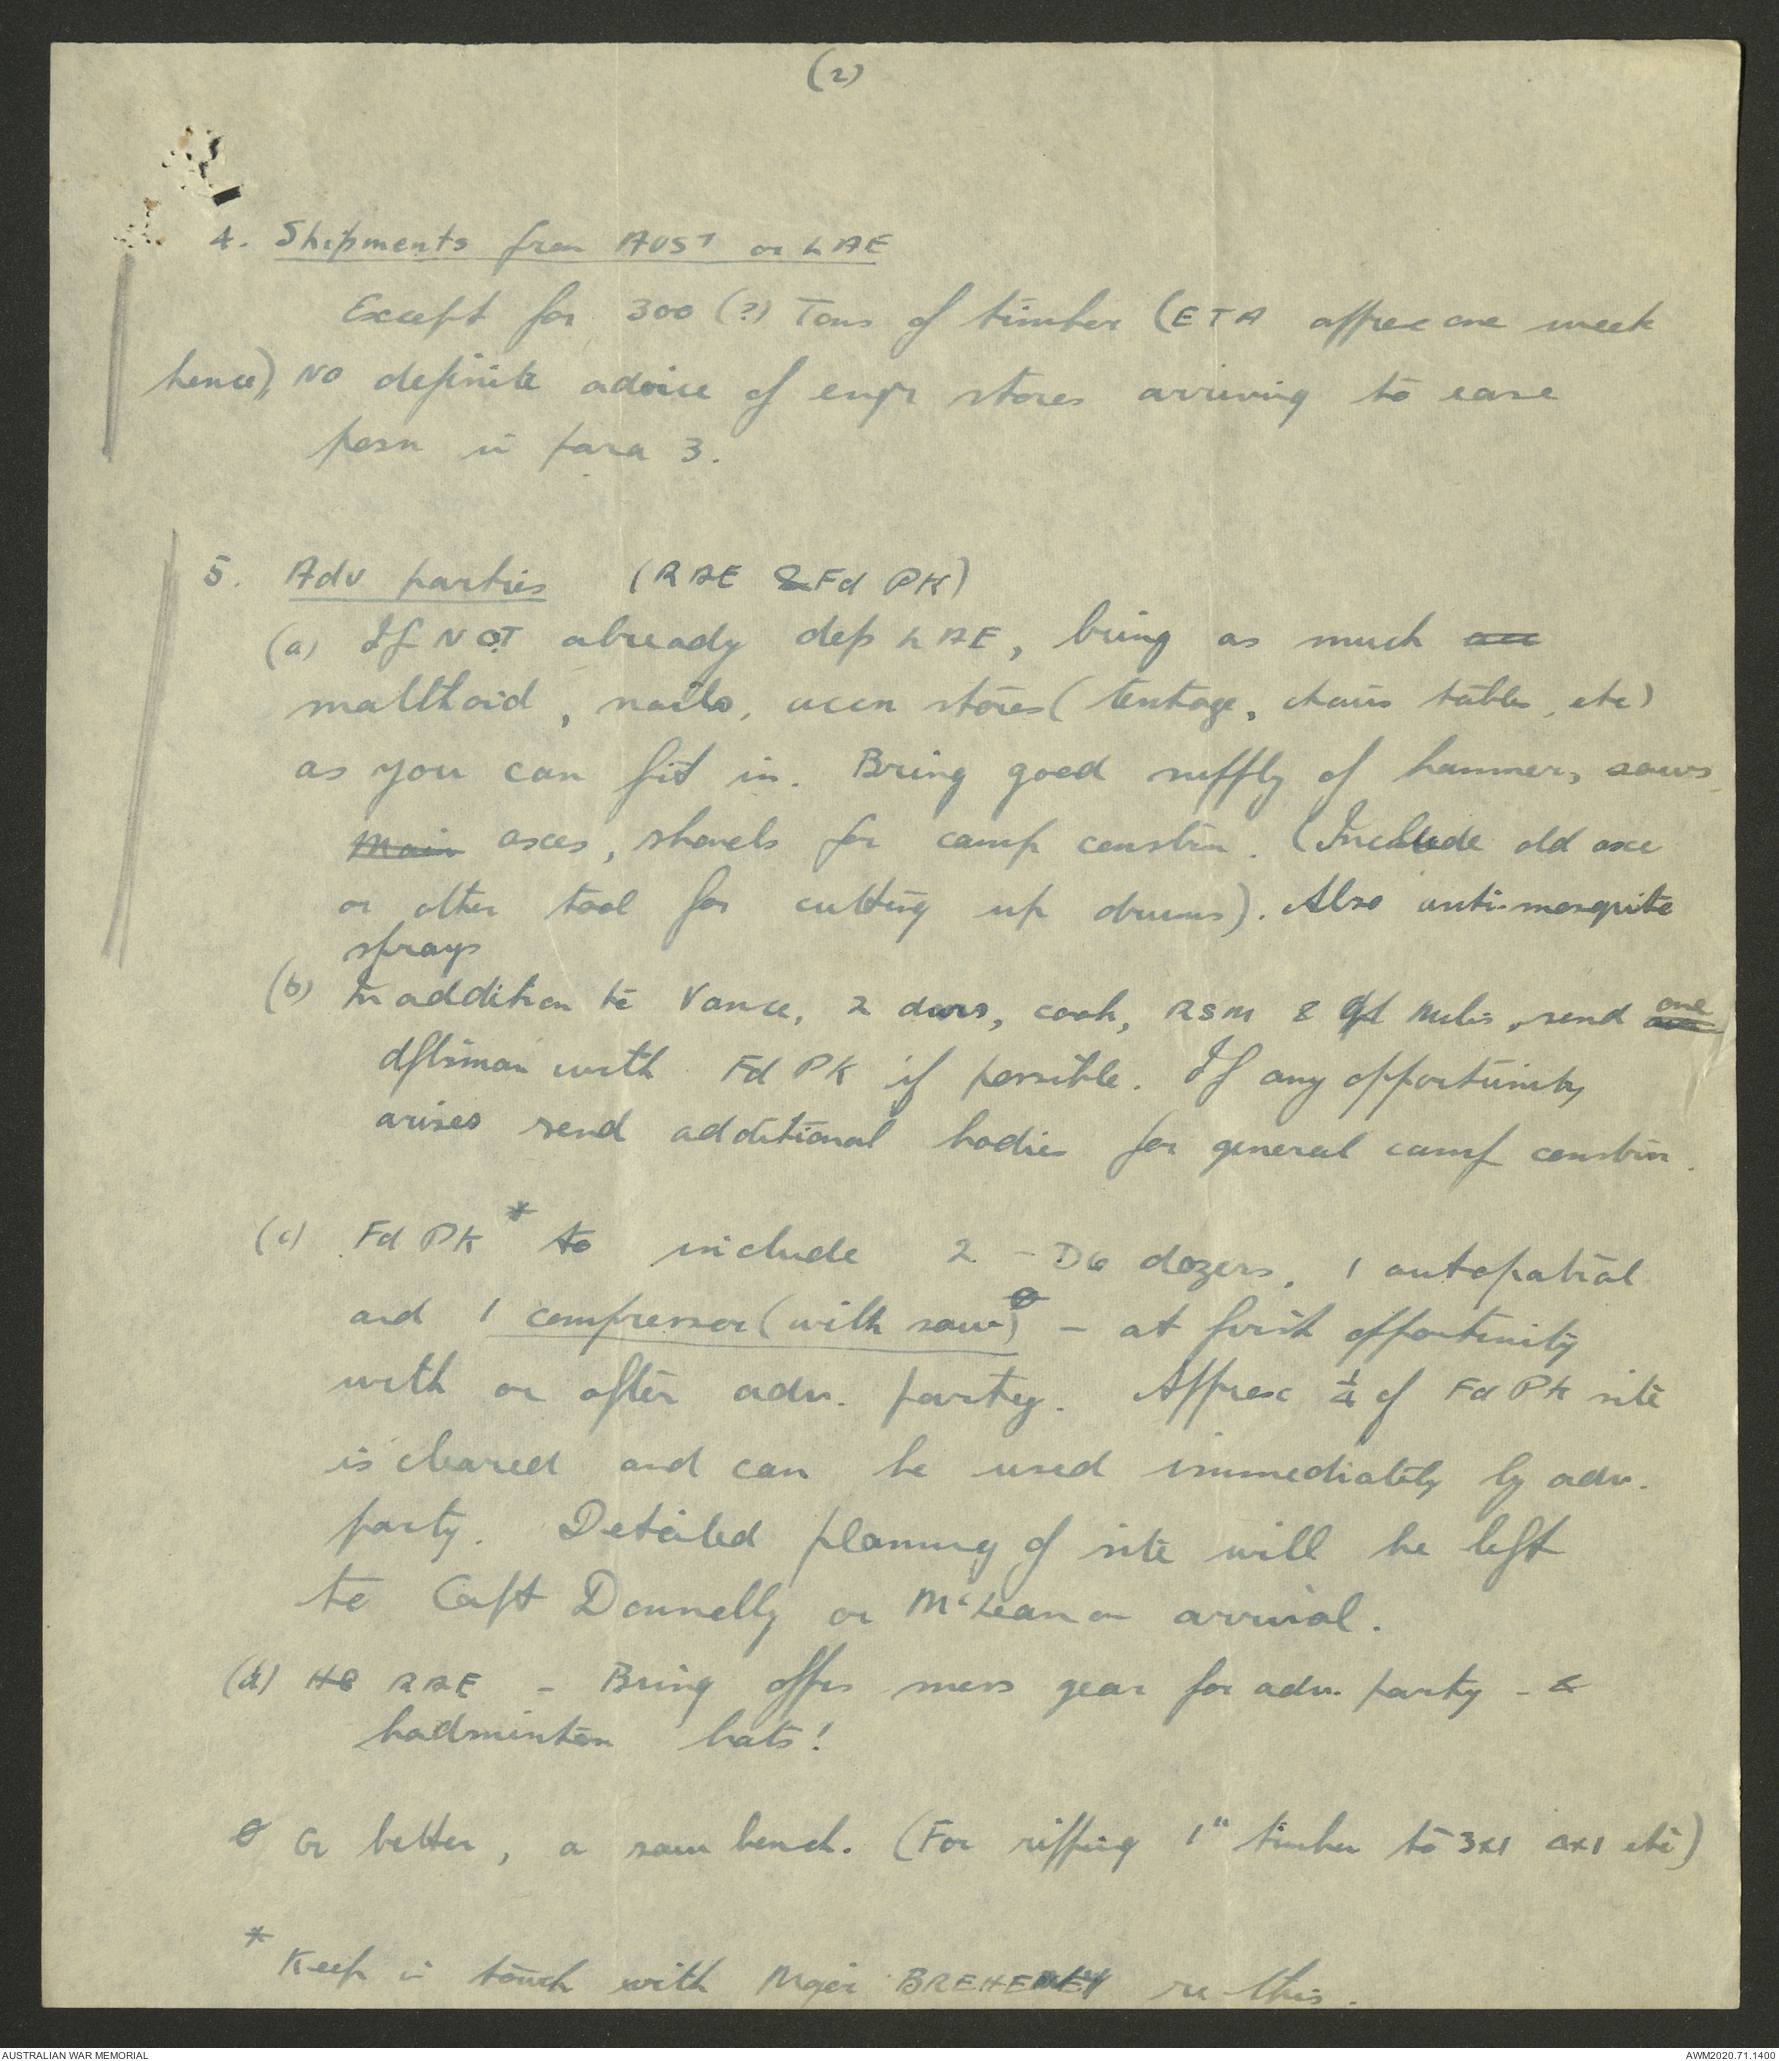 (2)
4. Shipments from AUST or LAE
Except for 300 (?) Tons of timber (ETA approx one week
hence), NO definite advice of engr stores arriving to ease
posn in para 3.
5. Adv parties (RAE & Fd PK)
(a) If NOT already dep LAE, bring as much
malthoid, nails, accn stores (tentage, chairs tables, etc)
as you can fit in. Bring good supply of hammers, saws,
Main axes, shovels for camp constrn. (Include old axe
or other tool for cutting up drums). Also anti-mosquito
sprays
(b) In addition to Vance, 2 dvrs, cook, RSM & Mills, send one
dftsman with Fd PK if possible. If any opportunity
arises send additional bodies for general camp constrn.
(c) Fd PK * to include 2 - D6 dozers, 1 autopatrol
and 1 compressor (with saw) ø - at first opportunity
with or after adv. party. Approx ¼ of Fd PK site
is cleared and can be used immediately by adv.
party. Detailed planning of site will be left
to Capt Donnelly or McLean on arrival.
(d) HQ RAE - Bring offrs mess gear for adv. party - &
badminton bats!
ø Or better, a saw bench. (For ripping 1" timber to 3x1 2x1 etc)
* Keep in touch with Major BREHENEY re this.
AUSTRALIAN WAR MEMORIAL
AWM2020.71.1400